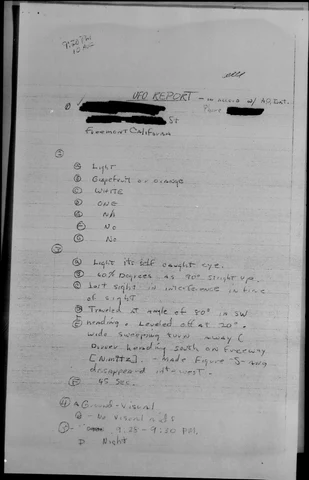 UFO REPORT - in accord w/ AD, Ext.
① St Phone
Freemont California
②
Ⓐ Light
Ⓑ Grapefruit or orange
Ⓒ WHITE
Ⓓ ONE
Ⓔ N/A
Ⓕ No
Ⓖ No
③
Ⓐ Light itself caught eye.
Ⓑ 60% Degrees as 90° straight up.
Ⓒ Lost sight in interference in line
of sight
Ⓓ Traveled at angle of 50° in SW
heading. Leveled off at 20°.
wide sweeping turn away (
Driver heading south on Freeway
[Nimitz]. - made Figure
disappeared into west.
Ⓔ 45 SEC.
④ A Ground-Visual
B - No Visual aids
9:28 - 9:30 PM.
D Night